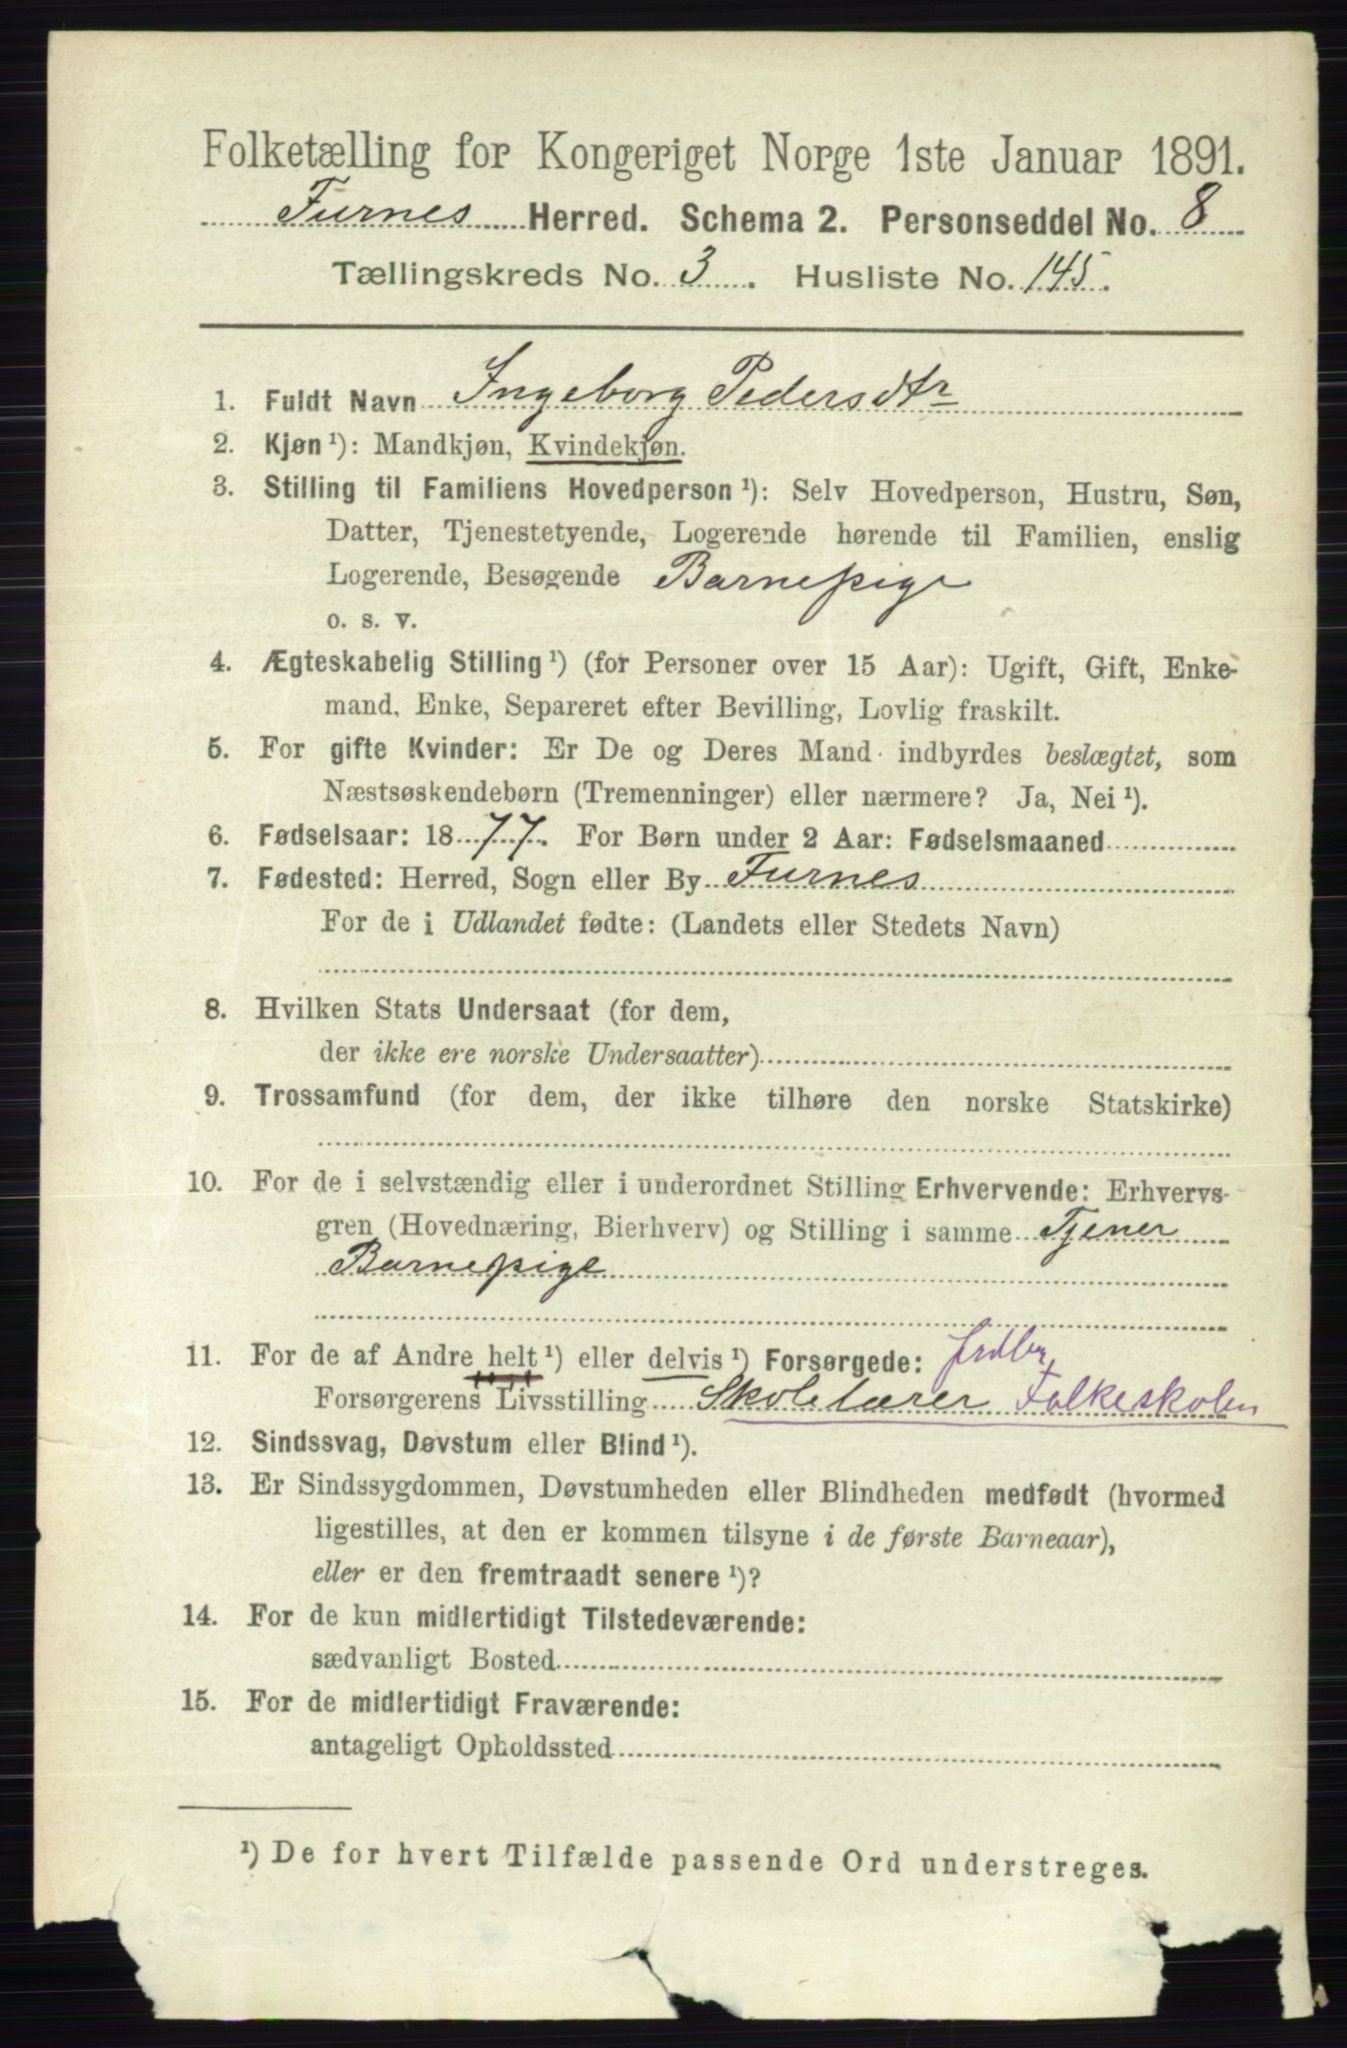 Folketælling for Kongeriget Norge 1ste Januar 1891.
Furnes Herred. Schema 2. Personseddel No. 8
Tællingskreds No. 3. Husliste No. 145.
1. Fuldt Navn Ingeborg Pedersdtr
2. Kjøn ¹): Mandkjøn, Kvindekjøn.
3. Stilling til Familiens Hovedperson ¹): Selv Hovedperson, Hustru, Søn,
Datter, Tjenestetyende, Logerende hørende til Familien, enslig
Logerende, Besøgende Barnepige
o. s. v.
4. Ægteskabelig Stilling ¹) (for Personer over 15 Aar): Ugift, Gift, Enke-
mand, Enke, Separeret efter Bevilling, Lovlig fraskilt.
5. For gifte Kvinder: Er De og Deres Mand indbyrdes beslægtet, som
Næstsøskendebørn (Tremenninger) eller nærmere? Ja, Nei ¹).
6. Fødselsaar: 1877. For Børn under 2 Aar: Fødselsmaaned
7. Fødested: Herred, Sogn eller By Furnes
For de i Udlandet fødte: (Landets eller Stedets Navn)
8. Hvilken Stats Undersaat (for dem,
der ikke ere norske Undersaatter)
9. Trossamfund (for dem, der ikke tilhøre den norske Statskirke)
10. For de i selvstændig eller i underordnet Stilling Erhvervende: Erhvervs-
gren (Hovednæring, Bierhverv) og Stilling i samme Tjener
Barnepige
11. For de af Andre helt ¹) eller delvis ¹) Forsørgede:
Forsørgerens Livsstilling Skolelærer Folkeskolen
12. Sindssvag, Døvstum eller Blind ¹).
13. Er Sindssygdommen, Døvstumheden eller Blindheden medfødt (hvormed
ligestilles, at den er kommen tilsyne i de første Barneaar),
eller er den fremtraadt senere ¹)?
14. For de kun midlertidigt Tilstedeværende:
sædvanligt Bosted
15. For de midlertidigt Fraværende:
antageligt Opholdssted
¹) De for hvert Tilfælde passende Ord understreges.